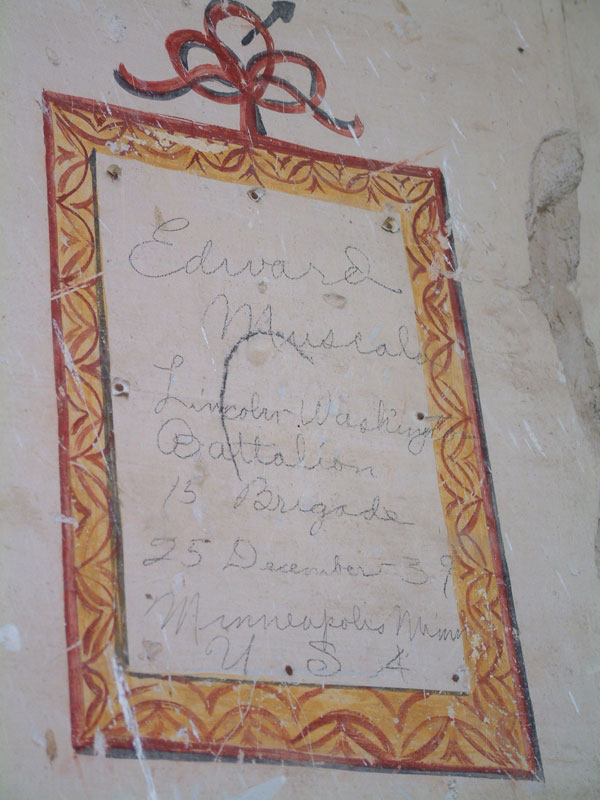 Edward
Muscala
Lincoln-Washington
Battalion
15 Brigade
25 December-39
Minneapolis Minn
U S A